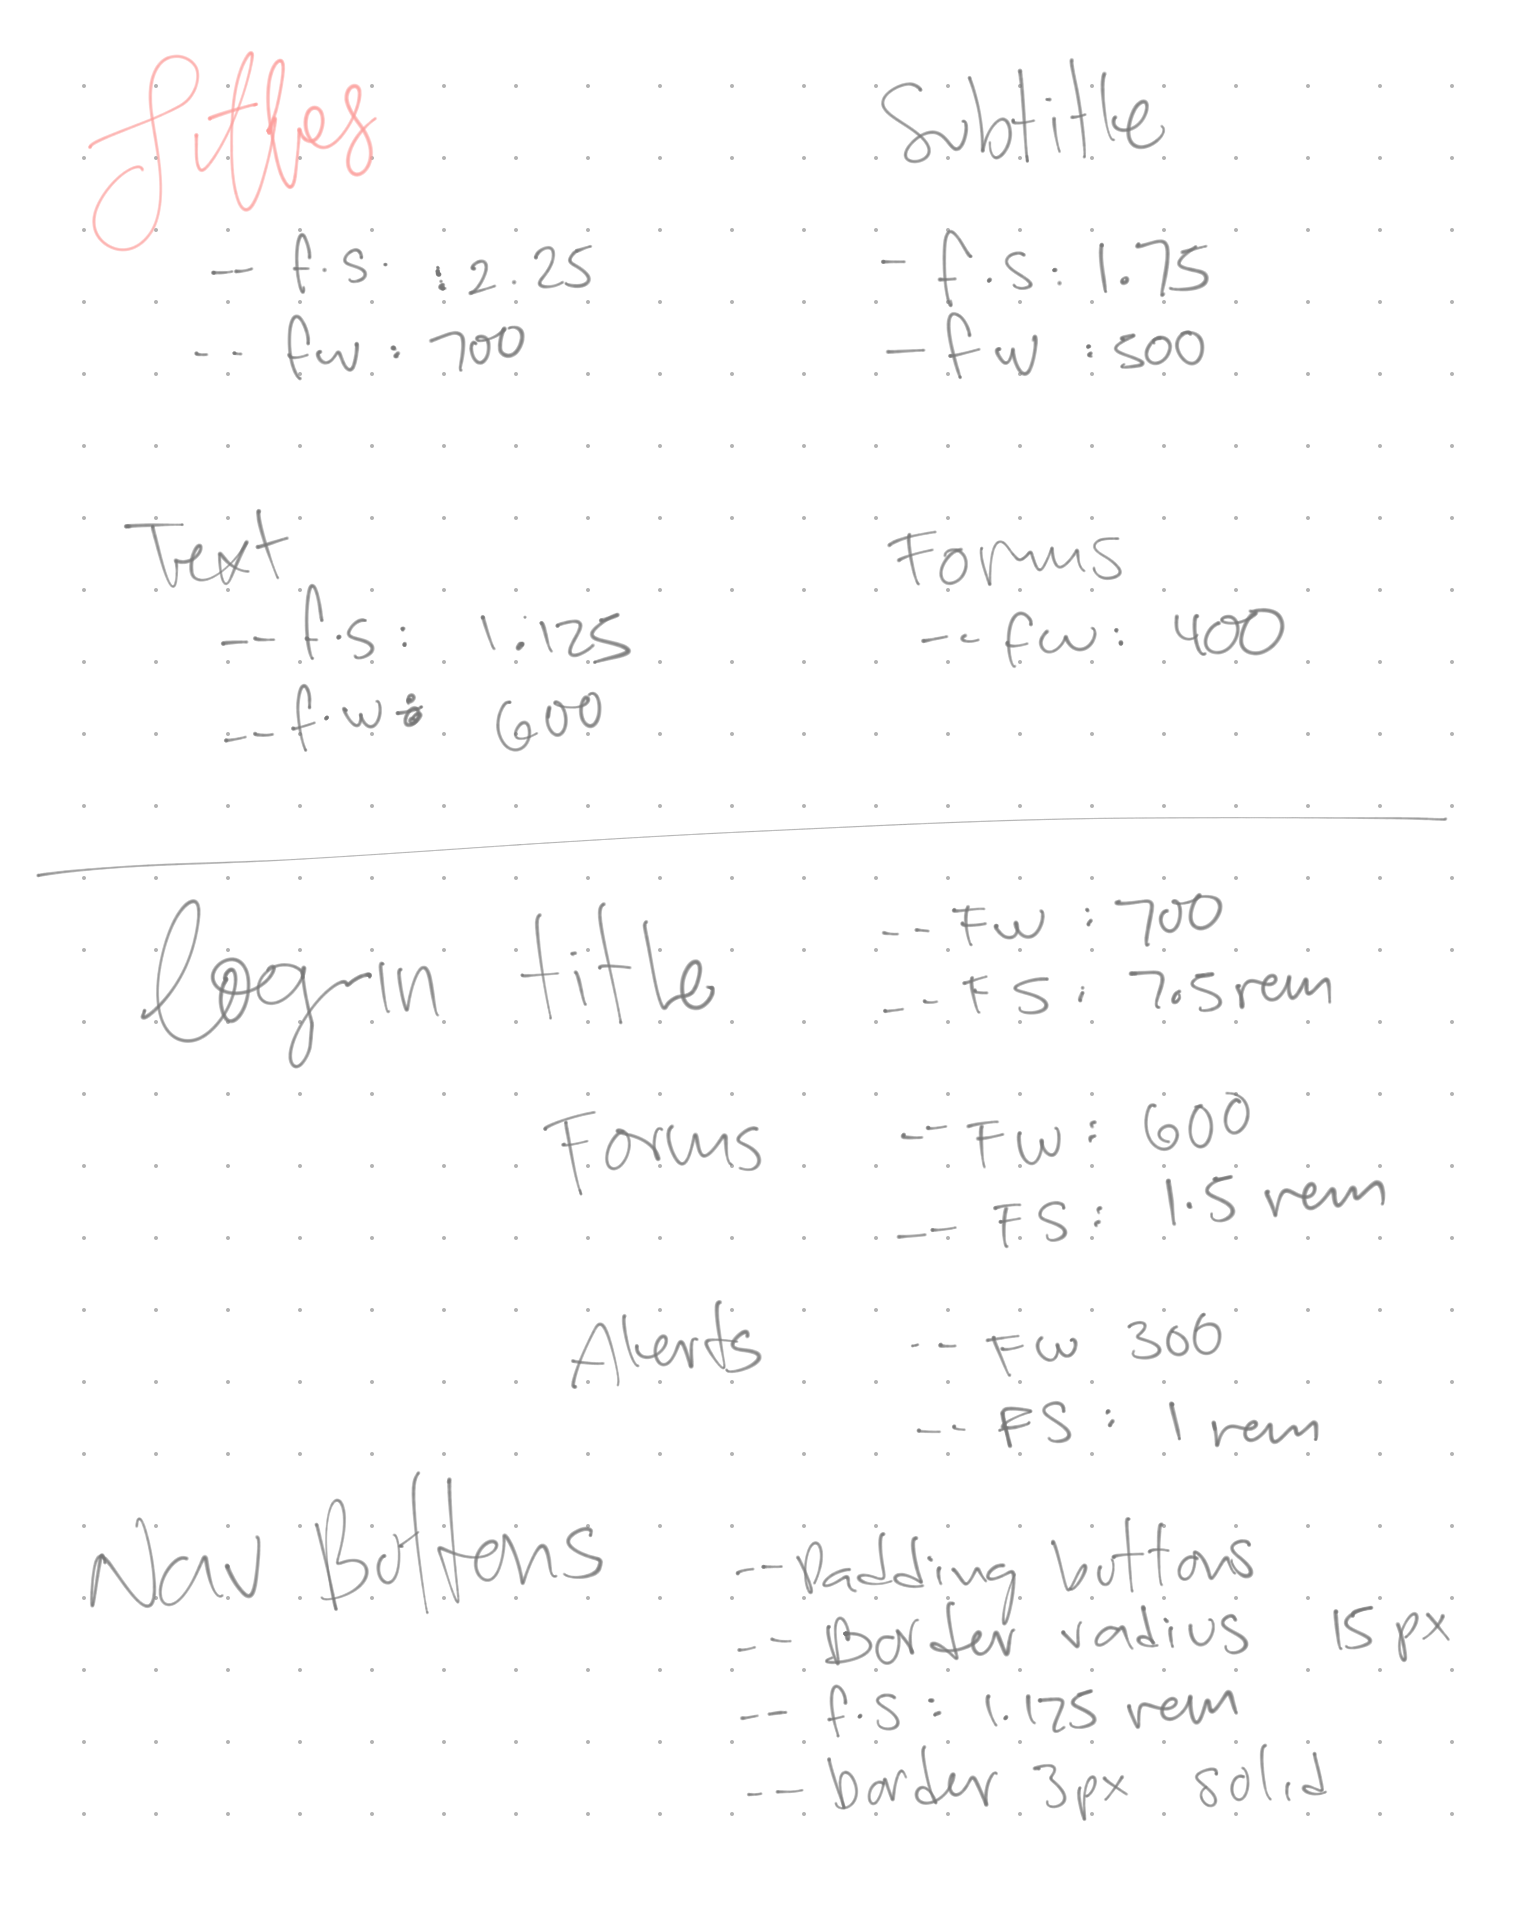 Titles
-- f.s. : 2.25
-- fw : 700
Subtitle
- f.s : 1.75
- fw : 500
Text
-- f.s : 1.125
-- f.w : 600
Forms
-- fw : 400
Login title
-- FW : 700
-- FS : 7.5 rem
Forms
-- FW : 600
-- FS : 1.5 rem
Alerts
-- FW 300
-- FS : 1 rem
Nav Buttons
-- Padding buttons
-- Border radius 15 px
-- f.s : 1.125 rem
-- border 3px solid